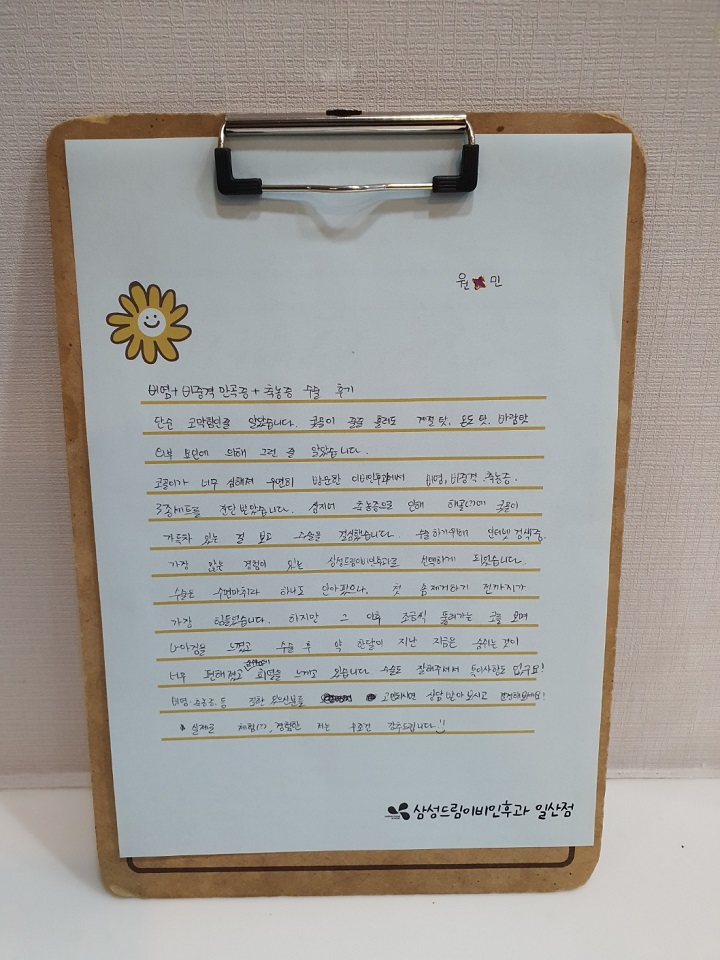 원 민
비염+비중격 만곡증+축농증 수술 후기
단순 코막힘인줄 알았습니다. 콧물이 줄줄 흘러도 계절 탓, 온도 탓, 바람탓
외부 요인에 의해 그런 줄 알았습니다.
코골이가 너무 심해져 우연히 방문한 이비인후과에서 비염, 비중격, 축농증.
3종세트를 진단받았습니다. 심지어 축농증으로 인해 콧물이
가득차 있는 걸 보고 수술을 결심했습니다. 수술하기위해 인터넷 검색중
가장 많은 경험이 있는 삼성드림이비인후과를 선택하게 되었습니다.
수술은 수면마취라 하나도 안아팠으나, 첫 솜제거하기 전까지가
가장 힘들었습니다. 하지만 그 이후 조금씩 뚫려가는 코를 보며
나아짐을 느꼈고 수술 후 약 한달이 지난 지금은 숨쉬는 것이
너무 편해졌고 희열을 느끼고 있습니다. 수술도 잘해주셔서 특이사항도 없구요!
비염 축농증 등 고민되시면 상담 받아 보시고 결정해보세요!
실제로 체험하고, 경험한 저는 무조건 강추드립니다!!
삼성드림이비인후과 일산점